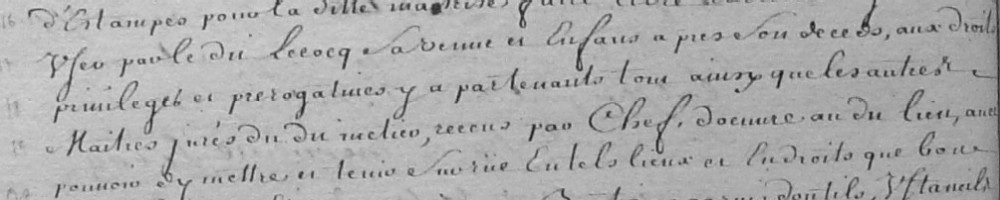 d'Estampes pour la ditte maitrise, faire
User par le du Lecocq sa veuve et Enfans apres son deceds, aux droits
privileges et prerogatives y apartenants tout ainsy que les autres
Maitres jurés du du metier, receus par Chef, d'oeuvre au du lieu, avec
pouvoir d'y mettre et tenir sur rüe En tels lieux et Endroits que bon
outils, Ustancils